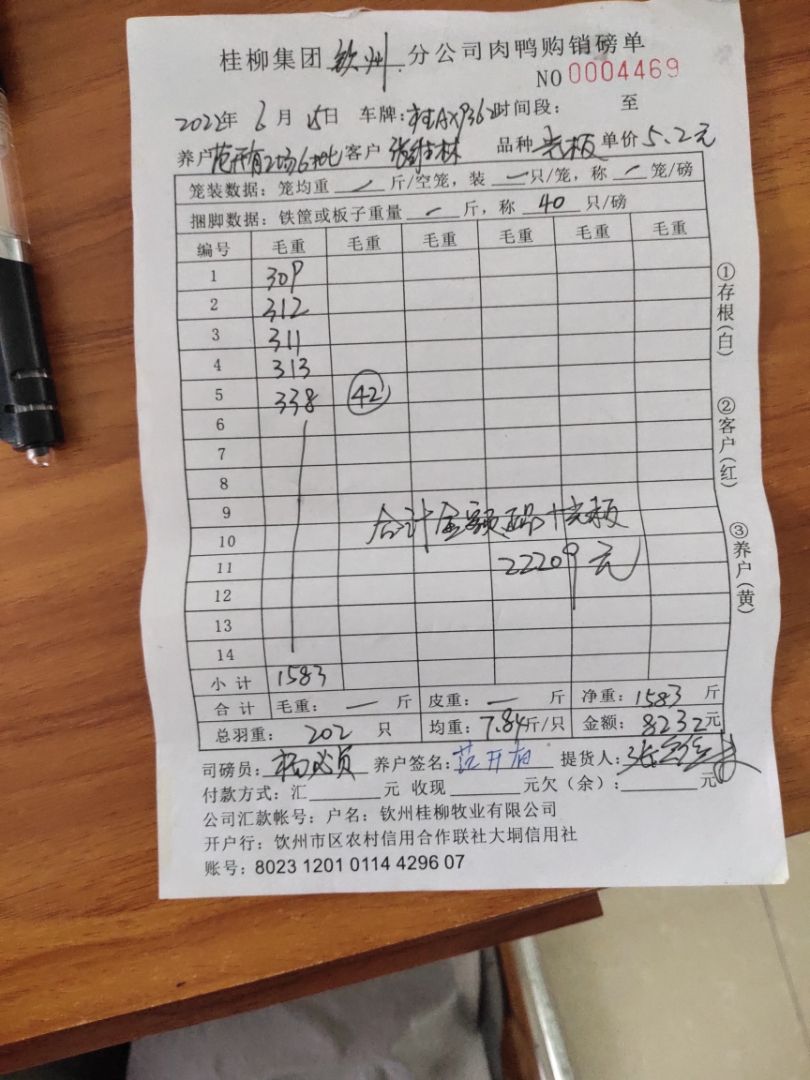 桂柳集团 钦州 分公司肉鸭购销磅单
NO 0004469
2022年 6月 15日 车牌: 桂AX9362 时间段: 至
养户 范开有2场6批 客户 张 林 品种 光板 单价 5.2元
笼装数据: 笼均重 — 斤/空笼, 装 — 只/笼, 称 — 笼/磅
捆脚数据: 铁筐或板子重量 — 斤, 称 40 只/磅
编号 毛重 毛重 毛重 毛重 毛重 毛重
1 309
2 312
3 311
4 313
5 338 42
6
7
8
9
合计金额 正品+光板
10
11 22209元
12
13
14
小计 1583
合计 毛重: — 斤 皮重: — 斤 净重: 1583 斤
总羽重: 202 只 均重: 7.84斤/只 金额: 8232元
司磅员: 养户签名: 范开有 提货人:
付款方式: 汇 元 收现 元欠(余): 元
公司汇款帐号: 户名: 钦州桂柳牧业有限公司
开户行: 饮州市区农村信用合作联社大垌信用社
账号: 8023 1201 0114 4296 07
①存根(白)
②客户(红)
③养户(黄)